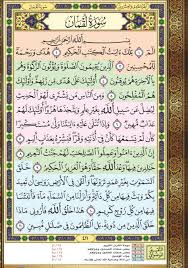 سُورَةُ لُقْمَانَ
بِسْمِ ٱللَّهِ ٱلرَّحْمَٰنِ ٱلرَّحِيمِ
الٓمٓ ١ تِلْكَ ءَايَٰتُ ٱلْكِتَٰبِ ٱلْحَكِيمِ ٢ هُدًى وَرَحْمَةً
لِّلْمُحْسِنِينَ ٣ ٱلَّذِينَ يُقِيمُونَ ٱلصَّلَوٰةَ وَيُؤْتُونَ ٱلزَّكَوٰةَ وَهُم
بِٱلْأٓخِرَةِ هُمْ يُوقِنُونَ ٤ أُو۟لَٰٓئِكَ عَلَىٰ هُدًى مِّن رَّبِّهِمْ وَأُو۟لَٰٓئِكَ
هُمُ ٱلْمُفْلِحُونَ ٥ وَمِنَ ٱلنَّاسِ مَن يَشْتَرِى لَهْوَ ٱلْحَدِيثِ
لِيُضِلَّ عَن سَبِيلِ ٱللَّهِ بِغَيْرِ عِلْمٍ وَيَتَّخِذَهَا هُزُوًا أُو۟لَٰٓئِكَ لَهُمْ
عَذَابٌ مُّهِينٌ ٦ وَإِذَا تُتْلَىٰ عَلَيْهِ ءَايَٰتُنَا وَلَّىٰ مُسْتَكْبِرًا
كَأَن لَّمْ يَسْمَعْهَا كَأَنَّ فِىٓ أُذُنَيْهِ وَقْرًا فَبَشِّرْهُ بِعَذَابٍ أَلِيمٍ ٧
إِنَّ ٱلَّذِينَ ءَامَنُوا۟ وَعَمِلُوا۟ ٱلصَّٰلِحَٰتِ لَهُمْ جَنَّٰتُ ٱلنَّعِيمِ ٨
خَٰلِدِينَ فِيهَا وَعْدَ ٱللَّهِ حَقًّا وَهُوَ ٱلْعَزِيزُ ٱلْحَكِيمُ ٩ خَلَقَ
ٱلسَّمَٰوَٰتِ بِغَيْرِ عَمَدٍ تَرَوْنَهَا وَأَلْقَىٰ فِى ٱلْأَرْضِ رَوَٰسِىَ أَن تَمِيدَ
بِكُمْ وَبَثَّ فِيهَا مِن كُلِّ دَآبَّةٍ وَأَنزَلْنَا مِنَ ٱلسَّمَآءِ مَآءً فَأَنۢبَتْنَا
فِيهَا مِن كُلِّ زَوْجٍ كَرِيمٍ ١٠ هَٰذَا خَلْقُ ٱللَّهِ فَأَرُونِى مَاذَا
خَلَقَ ٱلَّذِينَ مِن دُونِهِۦ بَلِ ٱلظَّٰلِمُونَ فِى ضَلَٰلٍ مُّبِينٍ ١١
٤١١